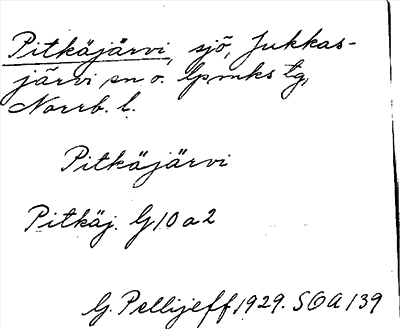 Pitkäjärvi, sjö, Jukkas-
järvi sn o. lpmks tg,
Norrb. l.
Pitkäjärvi
Pitkäj. G 10 a 2
G. Pellijeff 1929. SOA 139